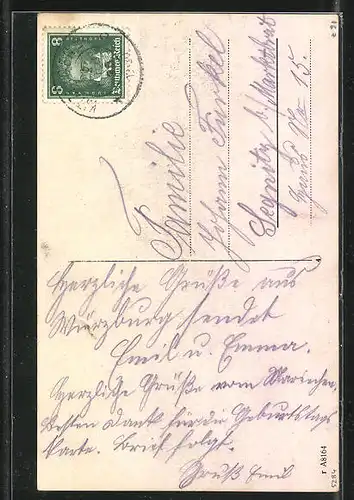 8 Deutsches Reich 8
Familie
Johann Furkel
Segnitz b/ Marktbreit
Haus No 15.
Herzliche Grüße aus
Würzburg sendet
Emil u. Emma.
Herzliche Grüße vom Mariechen,
besten Dank für die Geburtstags
Karte. Brief folgt.
Gruß Emil
r A8164